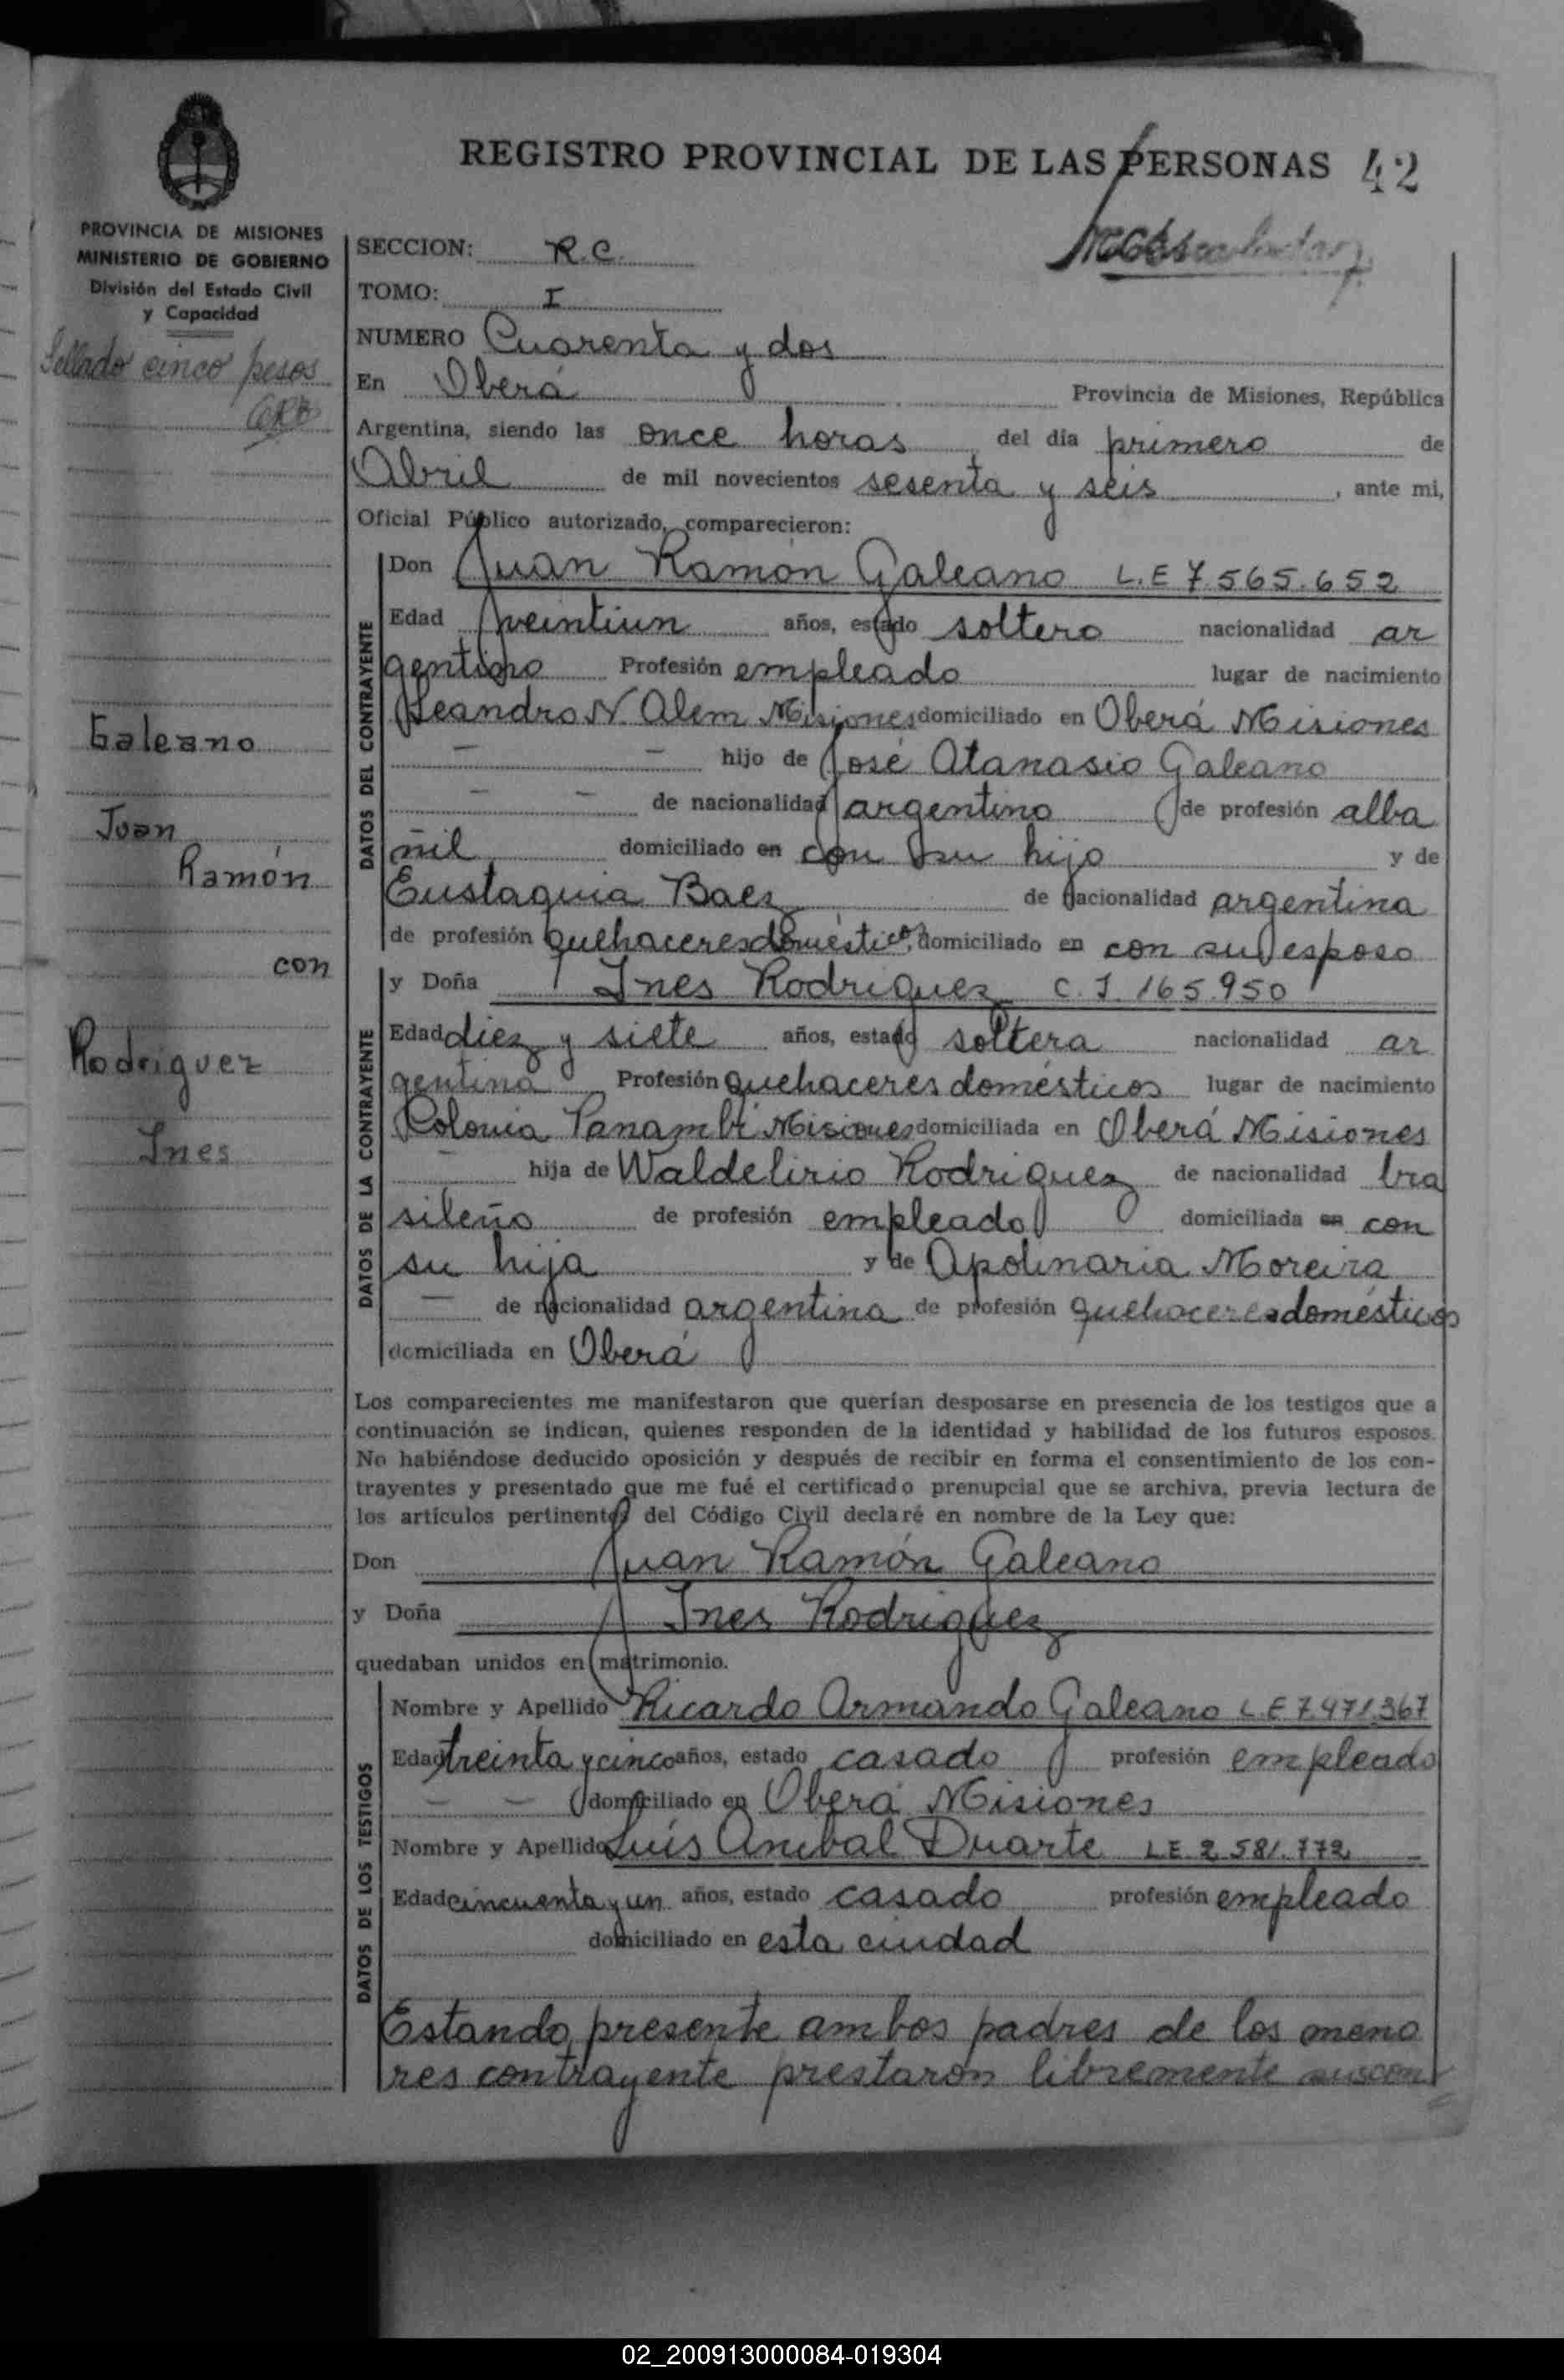 REGISTRO PROVINCIAL DE LAS PERSONAS 42
PROVINCIA DE MISIONES
MINISTERIO DE GOBIERNO
División del Estado Civil
y Capacidad
Sellado cinco pesos
Galeano
Juan
Ramón
con
Rodriguez
Ines
SECCION: R.C.
TOMO: I
NUMERO Cuarenta y dos
En Oberá Provincia de Misiones, República
Argentina, siendo las once horas, del día primero de
Abril de mil novecientos sesenta y seis, ante mi,
Oficial Público autorizado, comparecieron:
DATOS DEL CONTRAYENTE
Don Juan Ramón Galeano L.E 7.565.652
Edad veintiun años, estado soltero nacionalidad ar
gentino Profesión empleado lugar de nacimiento
Leandro N. Alem Misiones domiciliado en Oberá Misiones
— — hijo de José Atanasio Galeano
— — de nacionalidad argentino de profesión alba
ñil domiciliado en con su hijo y de
Eustaquia Baez de nacionalidad argentina
de profesión quehaceres domésticos, domiciliado en con su esposo
DATOS DE LA CONTRAYENTE
y Doña Ines Rodriguez C.I. 165.950
Edad diez y siete años, estado soltera nacionalidad ar
gentina Profesión quehaceres domésticos lugar de nacimiento
Colonia Panambí Misiones domiciliada en Oberá Misiones
— hija de Waldelirio Rodriguez de nacionalidad bra
sileño de profesión empleado domiciliada en con
su hija y de Apolinaria Moreira
— de nacionalidad argentina de profesión quehaceres domésticos
domiciliada en Oberá
Los comparecientes me manifestaron que querían desposarse en presencia de los testigos que a
continuación se indican, quienes responden de la identidad y habilidad de los futuros esposos.
No habiéndose deducido oposición y después de recibir en forma el consentimiento de los con-
trayentes y presentado que me fué el certificado prenupcial que se archiva, previa lectura de
los artículos pertinentes del Código Civil declaré en nombre de la Ley que:
Don Juan Ramón Galeano
y Doña Ines Rodriguez
quedaban unidos en matrimonio.
DATOS DE LOS TESTIGOS
Nombre y Apellido Ricardo Armando Galeano L.E 7.471.367
Edad treinta y cinco años, estado casado profesión empleado
— — domiciliado en Oberá Misiones
Nombre y Apellido Luis Anibal Duarte LE 2.581.772
Edad cincuenta y un años, estado casado profesión empleado
domiciliado en esta ciudad
Estando presente ambos padres de los meno
res contrayente prestaron libremente suscon
02_200913000084-019304